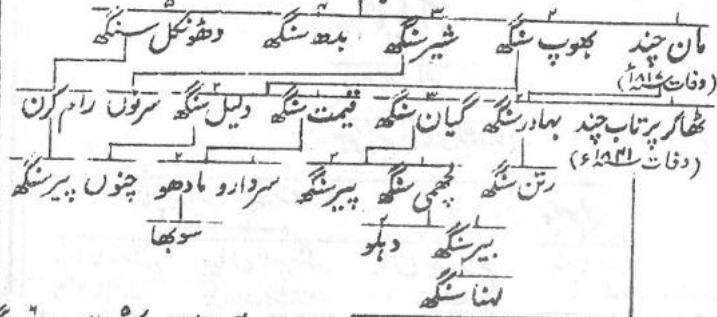 ۱ ۲ ۳ ۴ ۵
مان چند بھوپ سنگھ شیر سنگھ بدھ سنگھ دھونکل سنگھ
(وفات ۱۸۱۷ء)
ٹھاکر پرتاب چند بہادر سنگھ گیان سنگھ قیمت سنگھ دلیل سنگھ سرنوں رام کرن
(وفات ۱۸۴۱ء) رتن سنگھ لچھی سنگھ پیر سنگھ سردارو مادھو چنوں پیر سنگھ
بیر سنگھ دہلو سوبھا
لہنا سنگھ